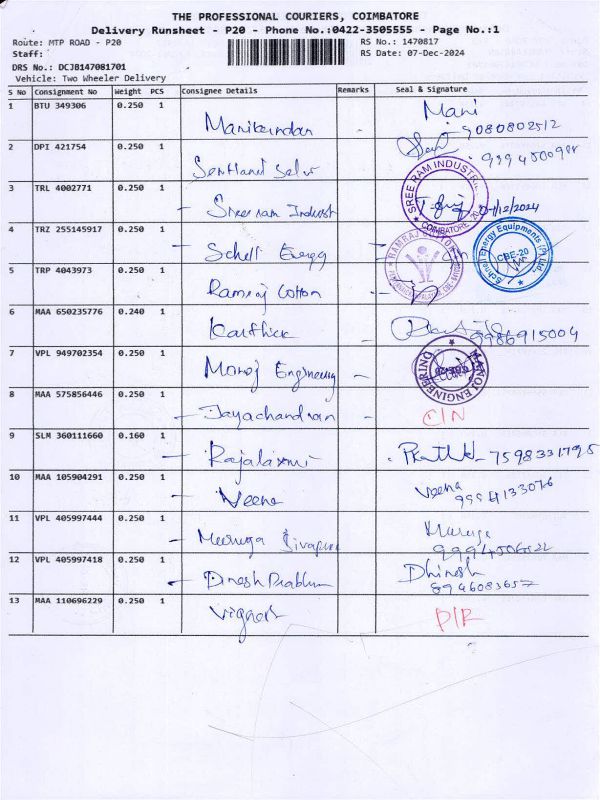 THE PROFESSIONAL COURIERS, COIMBATORE
Delivery Runsheet - P20 - Phone No.:0422-3505555 - Page No.:1
Route: MTP ROAD - P20 RS No.: 1470817
Staff: RS Date: 07-Dec-2024
DRS No.: DCJB147081701
Vehicle: Two Wheeler Delivery
S No Consignment No Weight PCS Consignee Details Remarks Seal & Signature
1 BTU 349306 0.250 1 Manikandan Mani
9080802512
2 DPI 421754 0.250 1
3 TRL 4002771 0.250 1 Sree ram Indust
SREE RAM INDUSTR
COIMBATORE
4 TRZ 255145917 0.250 1 Energy
Schnell Energy Equipments (P) Ltd.
CBE-20
5 TRP 4043973 0.250 1 Ramraj Cotton
RAMRAJ COTTON
6 MAA 650235776 0.240 1 Karthick
9986915004
7 VPL 949702354 0.250 1 Manoj Engineering
MANOJ ENGINEERING
8 MAA 575856446 0.250 1 Jayachandran C/N
9 SLM 360111660 0.160 1 Rajalaxmi 7598331795
10 MAA 105904291 0.250 1 Veena Veena
9994133076
11 VPL 405997444 0.250 1 Muruga
12 VPL 405997418 0.250 1 Dinesh Prabhu Dhinesh
8946083657
13 MAA 110696229 0.250 1 Vignesh D/R